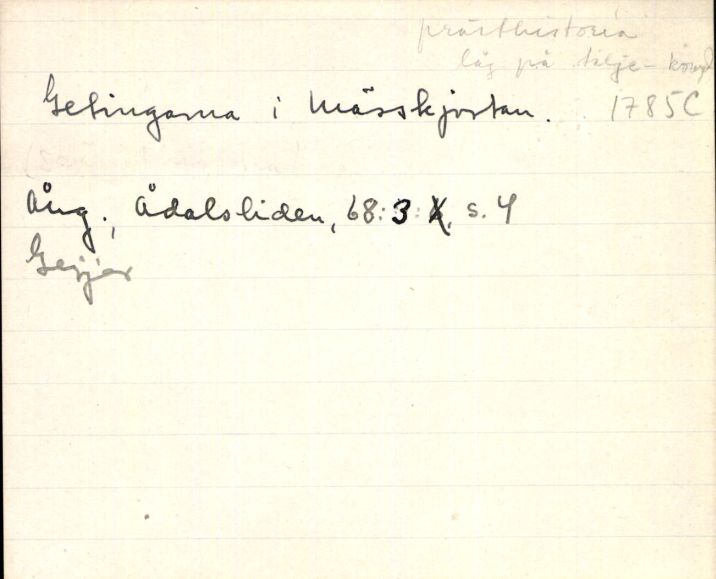 prästhistoria
låg på
Getingarna i mässkjortan. 1785C
Ång., Ådalsliden, 68:3:X, s. 4
Geijer